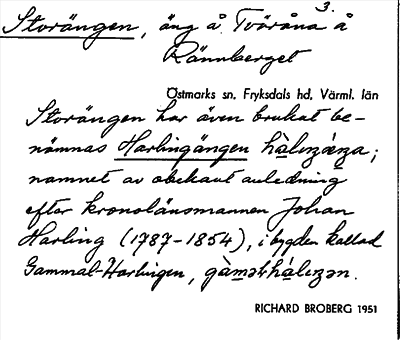 3.
Storängen, äng å Tvöråna å
Rännberget
Östmarks sn, Fryksdals hd, Värml. län
Storängen har även brukat be-
nämnas Harlingängen
namnet av obekant anledning
efter kronolänsmannen Johan
Harling (1787-1854), i bygden kallad
Gammal-Harlingen,
RICHARD BROBERG 1951